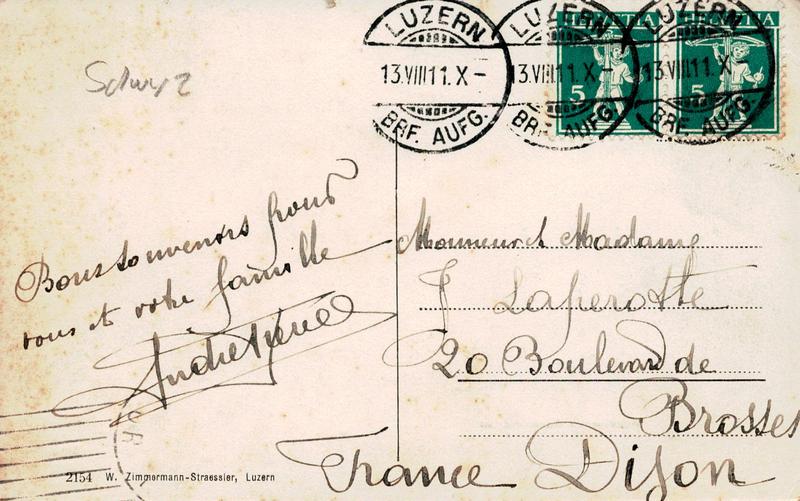 LUZERN
13.VIII11.X-
BRF. AUFG.
LUZERN
13.VIII11.X-
BRF. AUFG.
LUZERN
13.VIII11.X-
BRF. AUFG.
HELVETIA
5
HELVETIA
5
Schwyz
Bons souvenirs pour
vous et votre famille
André
Monsieur et Madame
J Laperotte
20 Boulevard de
Brosses
France Dijon
2154 W. Zimmermann-Straessler, Luzern